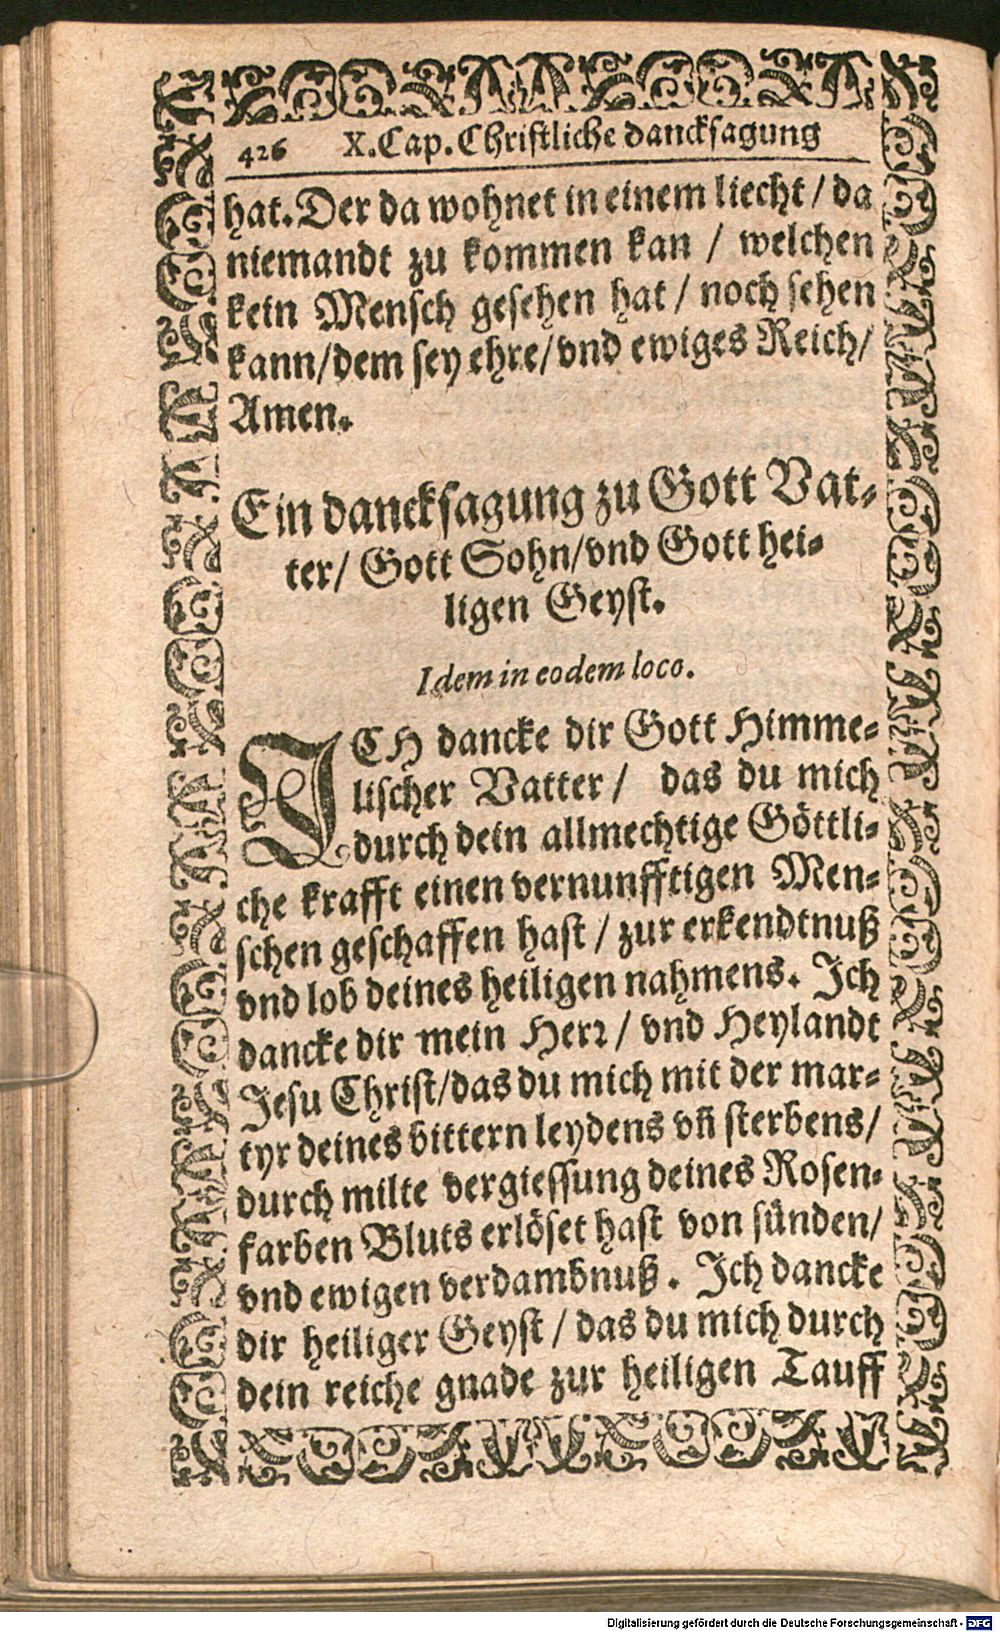 426 X. Cap. Christliche dancksagung
hat. Der da wohnet in einem liecht / da
niemandt zu kommen kan / welchen
kein Mensch gesehen hat / noch sehen
kann/dem sey ehre/vnd ewiges Reich/
Amen.
Ein dancksagung zu Gott Vat-
ter/ Gott Sohn/vnd Gott hei-
ligen Geyst.
Idem in eodem loco.
ICH dancke dir Gott Himme-
lischer Vatter/ das du mich
durch dein allmechtige Göttli-
che krafft einen vernunfftigen Men-
schen geschaffen hast / zur erkendtnuß
vnd lob deines heiligen nahmens. Ich
dancke dir mein Herr / vnd Heylandt
Jesu Christ/das du mich mit der mar-
tyr deines bittern leydens vn̄ sterbens/
durch milte vergiessung deines Rosen-
farben Bluts erlöset hast von sünden/
vnd ewigen verdambnuß. Ich dancke
dir heiliger Geyst / das du mich durch
dein reiche gnade zur heiligen Tauff
Digitalisierung gefördert durch die Deutsche Forschungsgemeinschaft - DFG